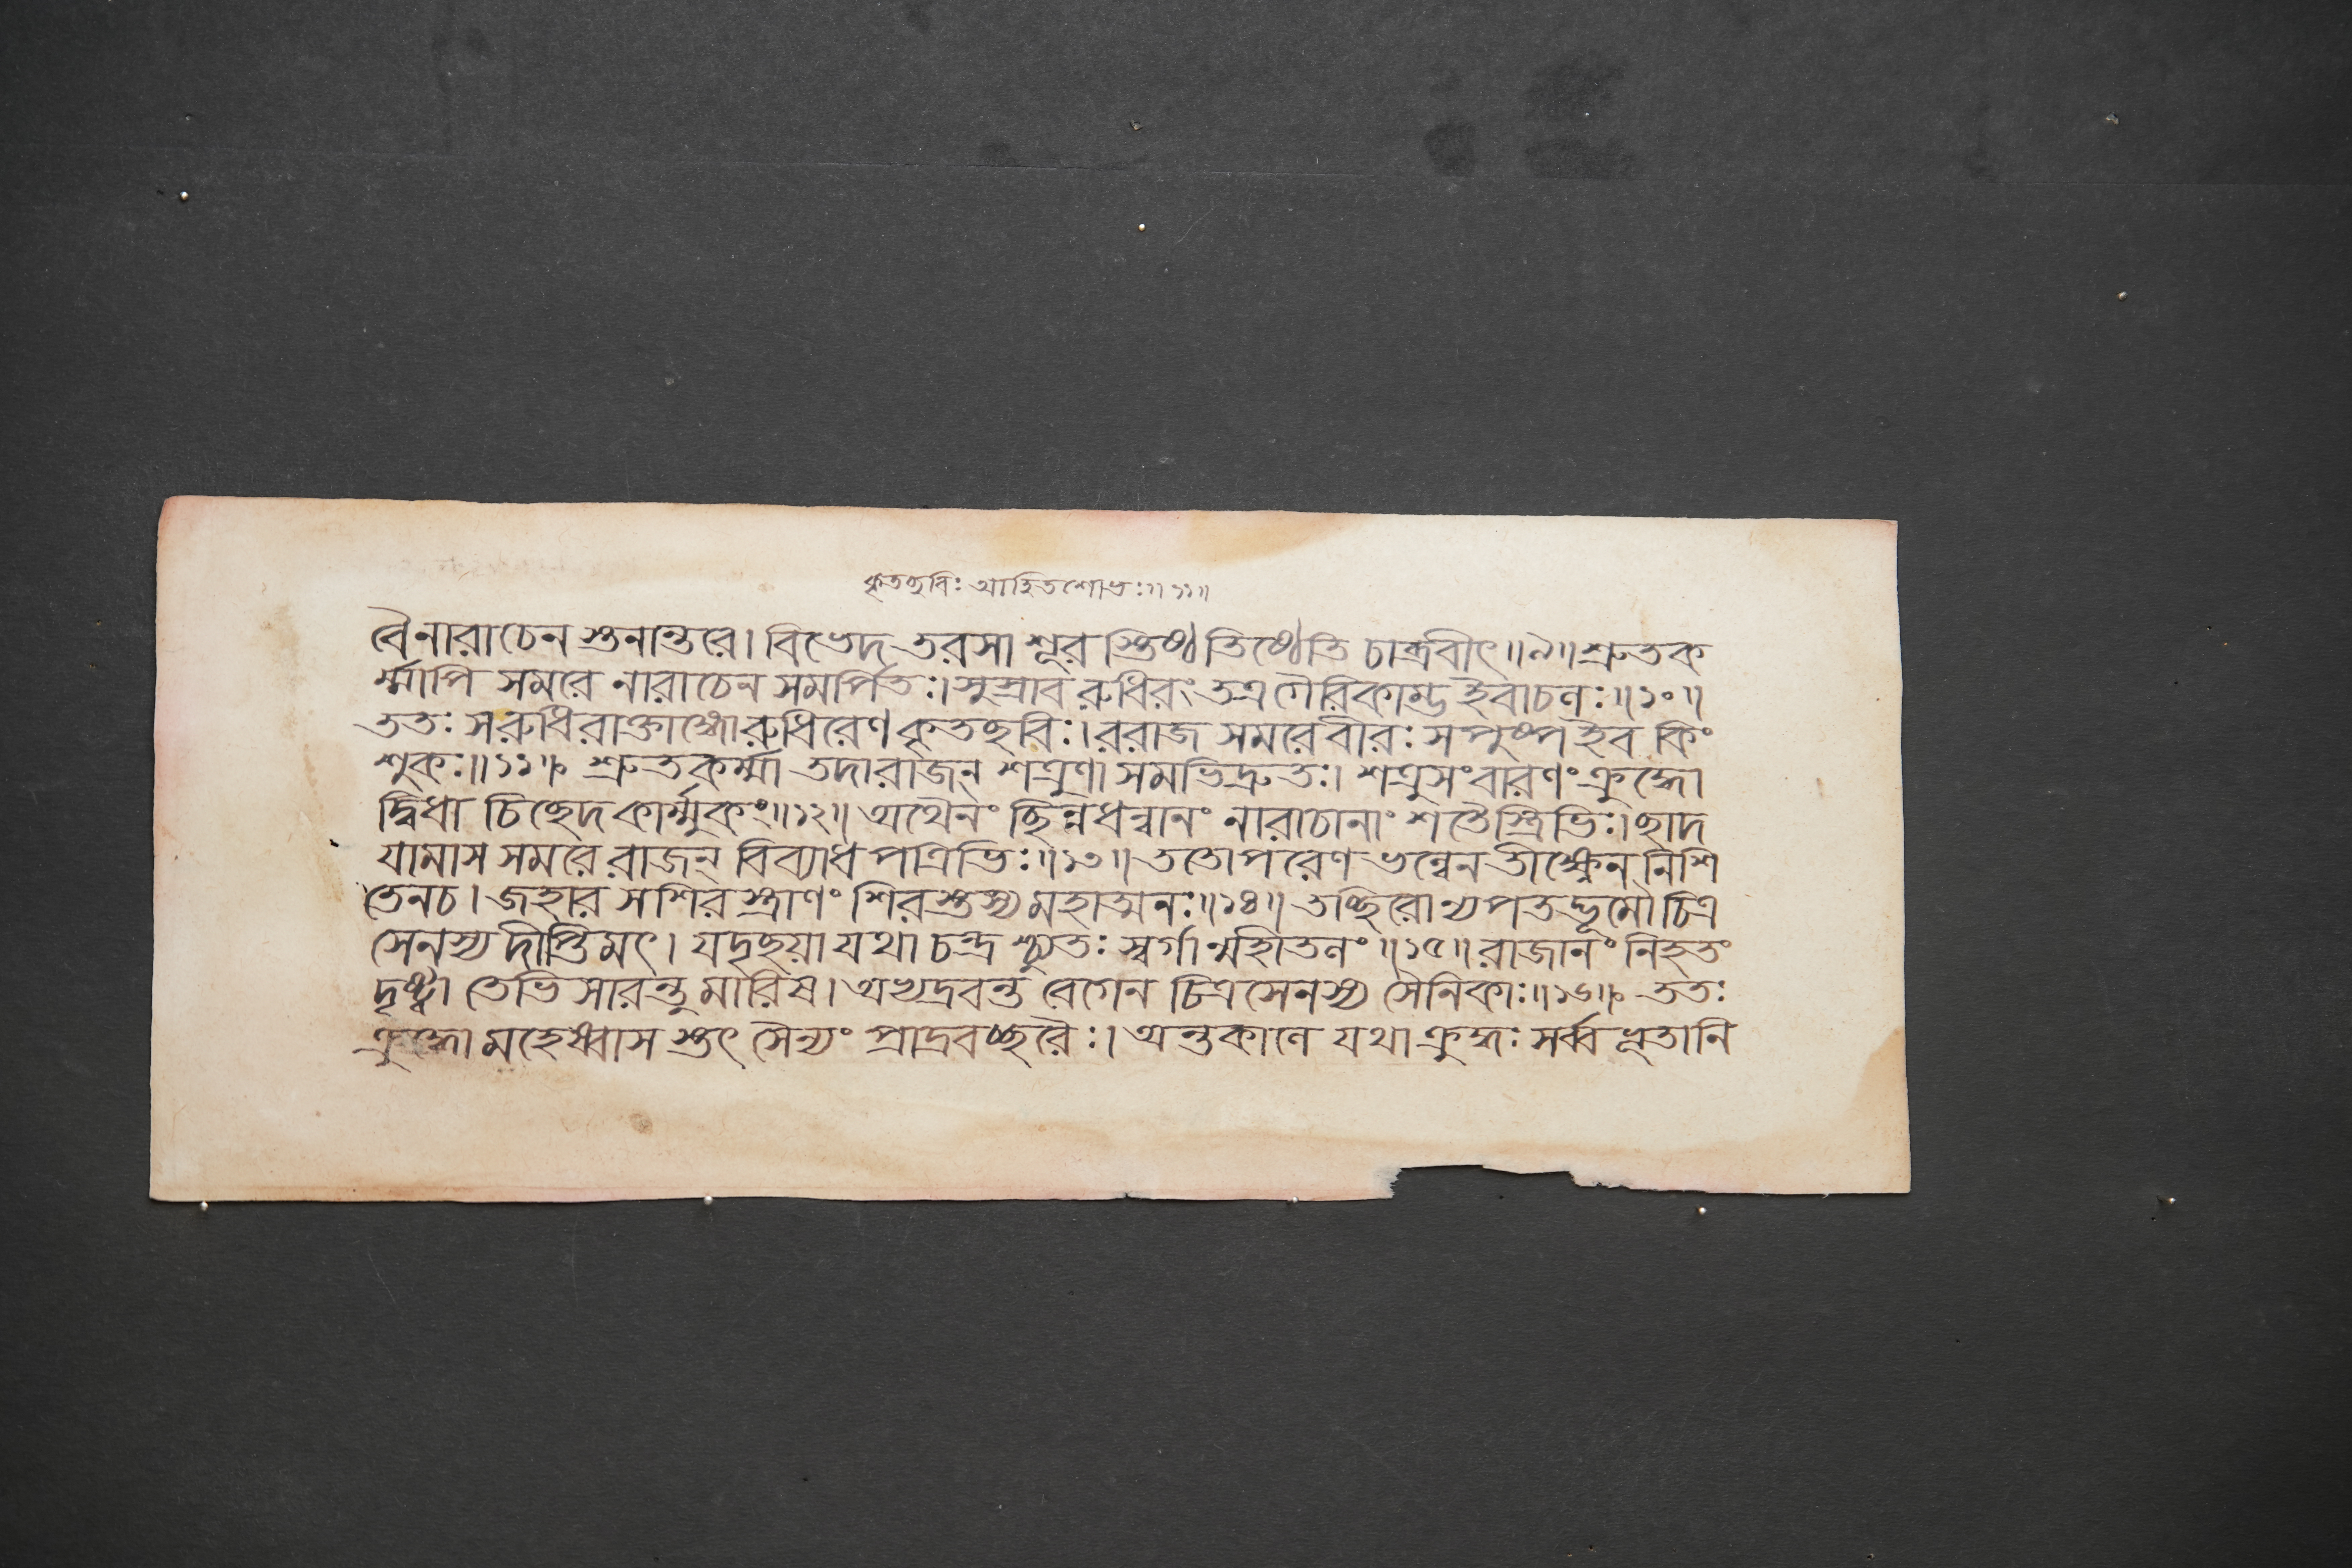 কৃতছবিঃ আহিতশোভঃ॥১১॥
বৈনারাচেন স্তনান্তরে। বিভেদ তরসা শূর স্তিষ্ঠ তিষ্ঠেতি চাব্রবীৎ॥৯॥ শ্রুতক
র্ম্মাপি সমরে নারাচেন সমর্পিতঃ। সুস্রাব রুধিরং তত্র গৈরিকাম্ভ ইবাচলঃ॥১০॥
ততঃ সরুধিরাক্তাঙ্গোরুধিরেণ কৃতছবিঃ। ররাজ সমরেবীরঃ সপুষ্প ইব কিং
শুকঃ॥১১॥ শ্রুতকর্ম্মা তদারাজন্ শত্রুণা সমভিদ্রুতঃ। শত্রুসংবারণং ক্রুদ্ধো
দ্বিধা চিচ্ছেদ কার্ম্মুকং॥১২॥ অথৈনং ছিন্নধন্বানং নারাচানাং শতৈস্ত্রিভিঃ। ছাদ
যামাস সমরে রাজন্ বিব্যাধ পত্রিভিঃ॥১৩॥ ততোপরেণ ভল্লেন তীক্ষ্ণেন নিশি
তেনচ। জহার সশির স্ত্রাণং শিরস্তস্য মহাত্মনঃ॥১৪॥ তচ্ছিরোন্যপতদ্ভূমৌ চিত্র
সেনস্য দীপ্তিমৎ। যদৃছয়া যথা চন্দ্র শ্চ্যুতঃ স্বর্গান্মহীতলং॥১৫॥ রাজানং নিহতং
দৃষ্ট্বা তেভিসারন্তু মারিষ। অভ্যদ্রবন্ত বেগেন চিত্রসেনস্য সৈনিকাঃ॥১৬॥ ততঃ
ক্রুদ্ধো মহেষ্বাস স্তৎ সৈন্যং প্রাদ্রবচ্ছরৈঃ। অন্তকালে যথা ক্রুদ্ধঃ সর্ব্ব ভূতানি